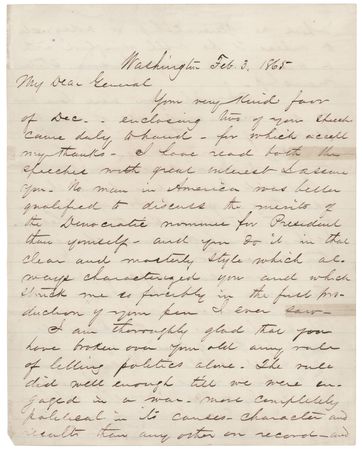 Washington Feb. 3, 1865
My Dear General
Your very kind favor
of Dec. - enclosing two of your speech
came duly to hand - for which accept
my thanks - I have read both the
speeches with great interest I assure
you. No man in America was better
qualified to discuss the merits of
the Democratic nominee for President
than yourself - and you do it in that
clear and masterly style which al-
ways characterized you and which
struck me so forcibly in the first pro-
duction of your pen I ever saw -
I am thoroughly glad that you
have broken over your old army rule
of letting politics alone. The rule
did well enough till we were en-
gaged in a war - more completely
political in its causes - character and
results than any other on record - and